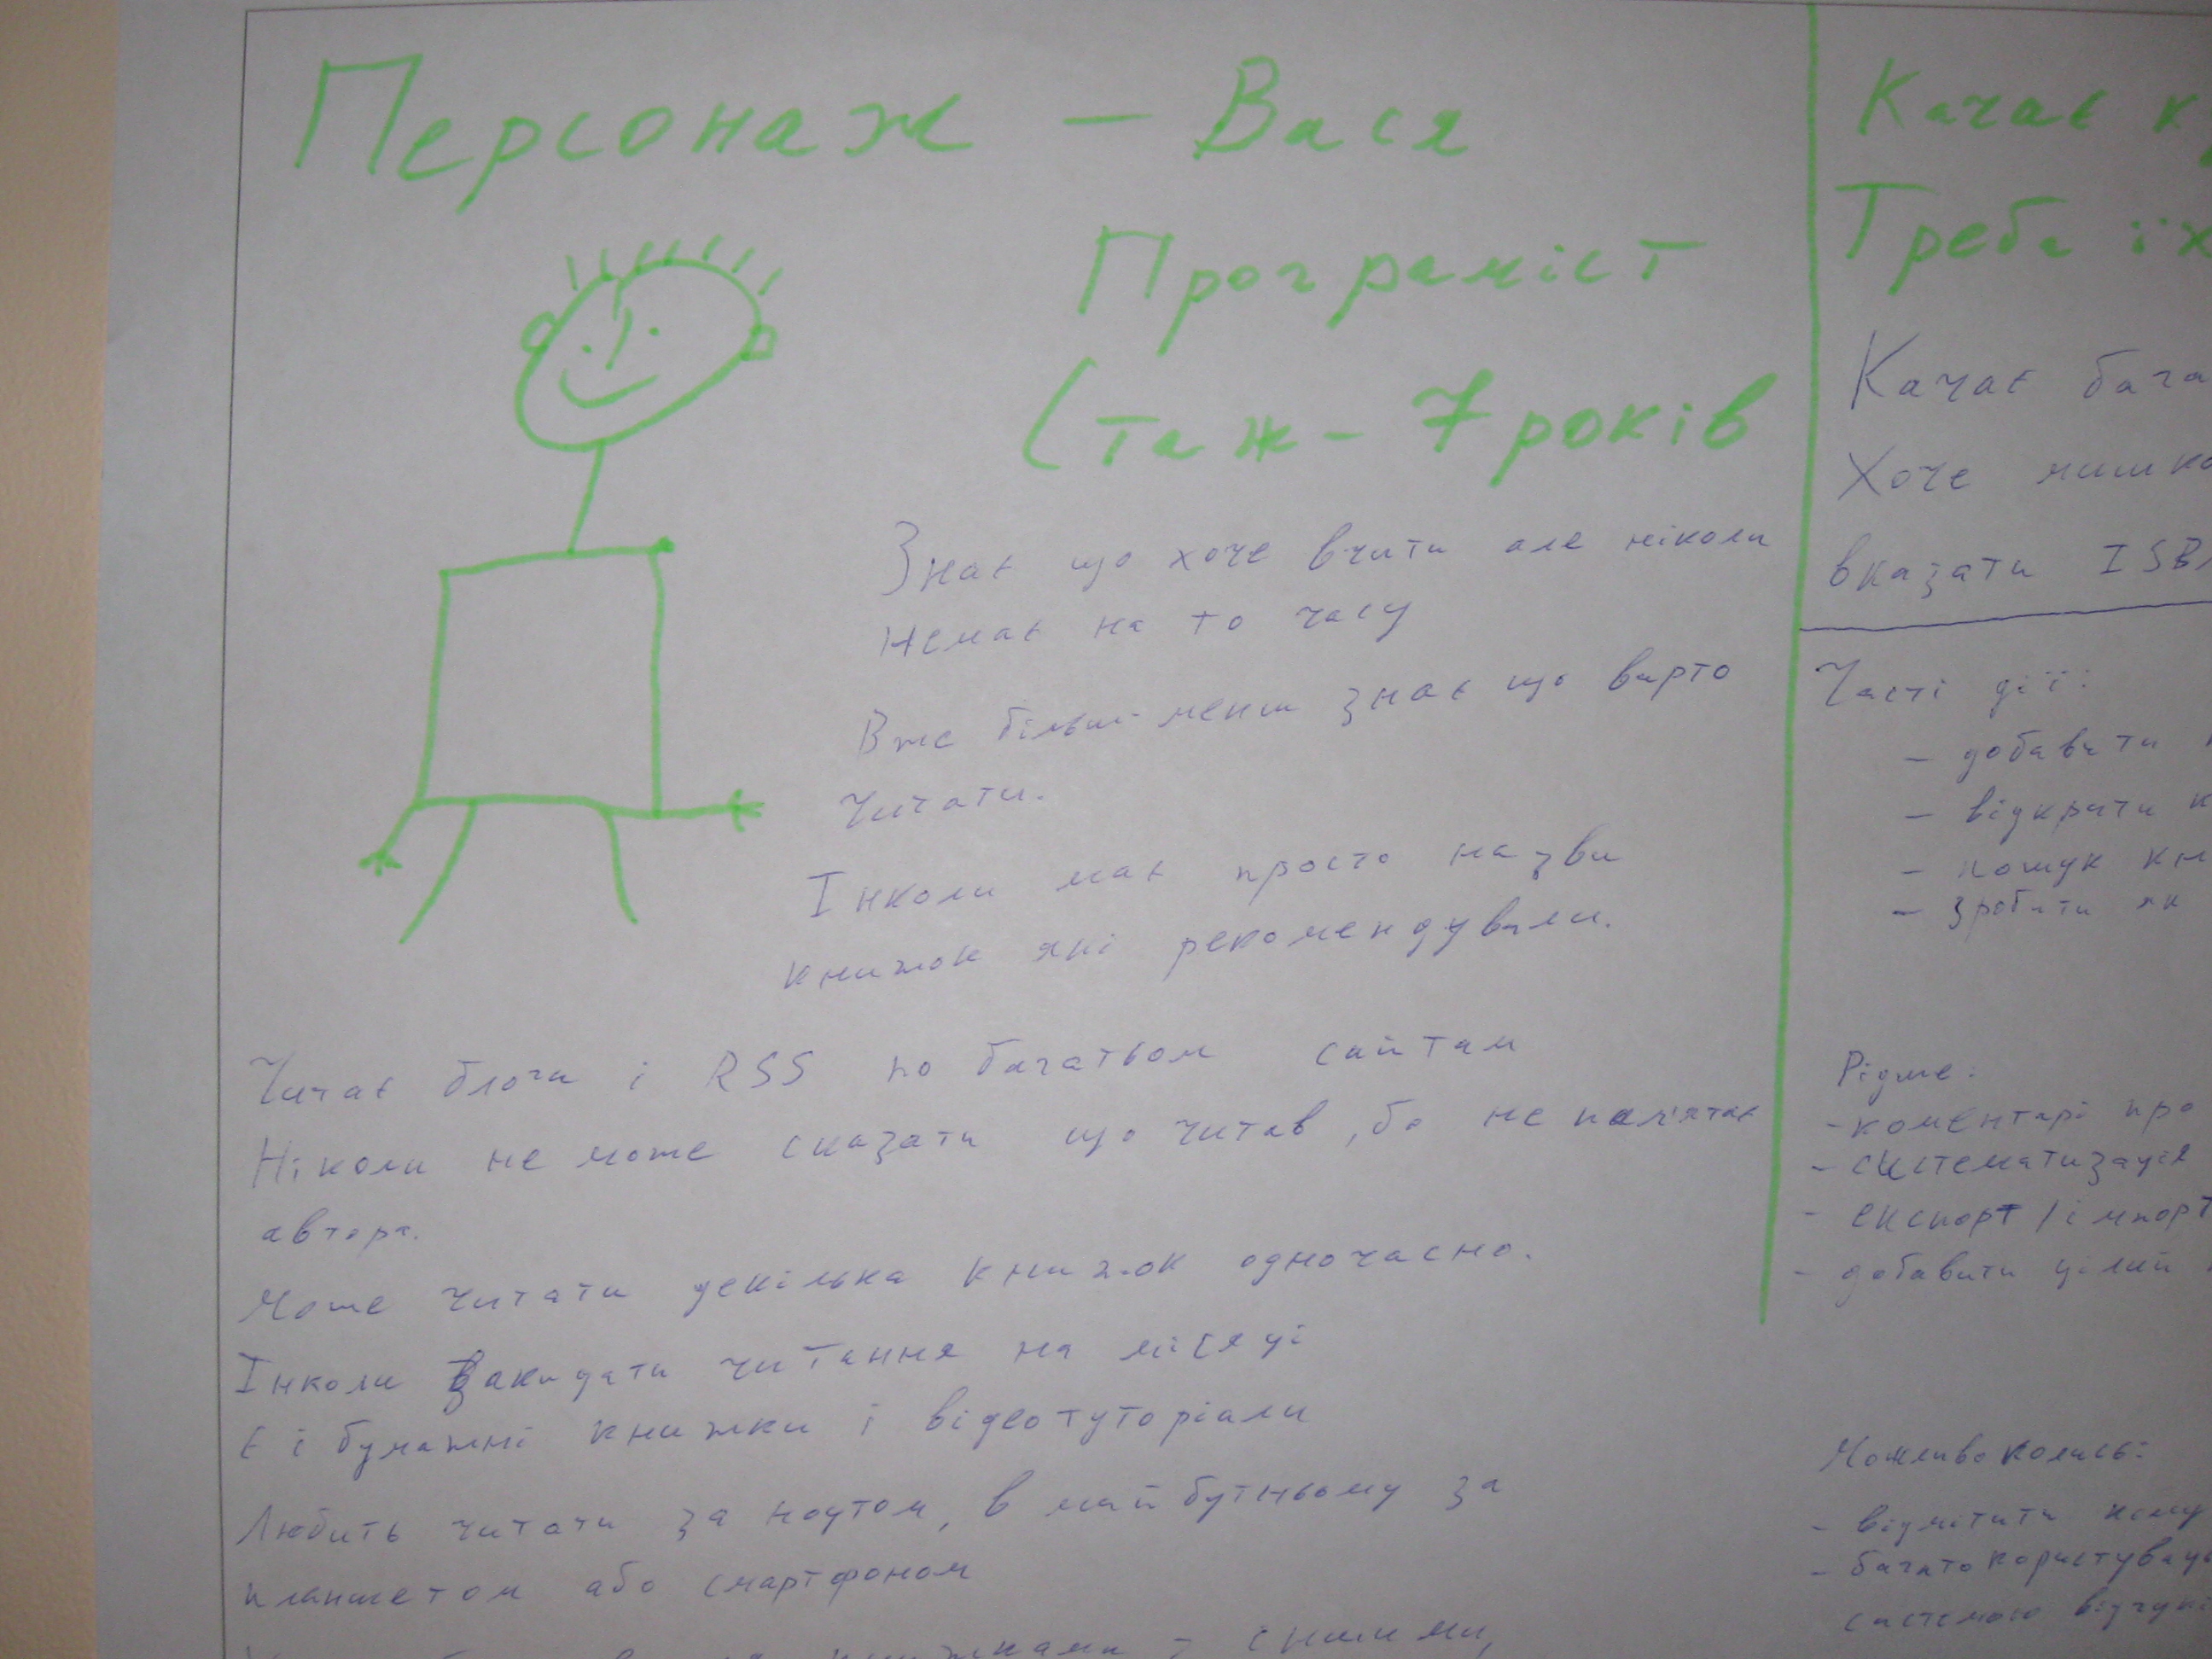 Персонаж – Вася
Програміст
(таж – 7 років
Знає що хоче вчити але ніколи
немає на то часу
Вже більш-менш знає що варто
читати.
Інколи має просто назви
книжок які рекомендували.
Читає блоги і RSS по багатьом сайтам
Ніколи не може сказати що читав, бо не пам'ятає
автора.
Може читати декілька книжок одночасно.
Інколи закидати читання на місяці
Є і бумажні книжки і відеотуторіали
Любить читати за ноутом, в майбутньому за
планшетом або смартфоном
книжками – своїми,
Качає к
Треба їх
Качає бага
Хоче
вказати ISB
Часті дії:
– добавити
– відкрити к
– пошук кн
– зробити як
Рідше:
- коментарі про
- систематизація
- експорт/імпорт
- добавити цілий
Можливо колись:
- відмітити кому
- багатокористувац
системою відгукі